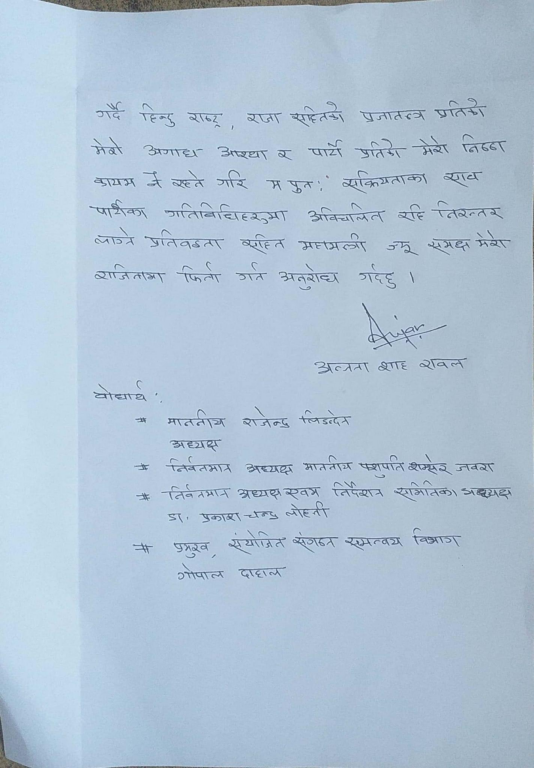 गर्दै हिन्दु राष्ट्र, राजा सहितको प्रजातन्त्र प्रतिको
मेरो अगाध आस्था र पार्टी प्रतिको मेरो निष्ठा
कायम नै रहने गरि म पुनः सक्रियताका साथ
पार्टीका गतिविधिहरुमा अविचलित रहि निरन्तर
लाग्ने प्रतिवद्धता सहित महामन्त्री ज्यू समक्ष मेरो
राजिनामा फिर्ता गर्न अनुरोध गर्दछु ।
शाह रावल
वोधार्थ :
* माननीय राजेन्द्र लिङदेन
अध्यक्ष
* निर्वतमान अध्यक्ष माननीय पशुपति शमशेर जवरा
* निर्वतमान अध्यक्ष एवम निर्देशन समितिका अध्यक्ष
डा. प्रकाश चन्द्र लोहनी
* प्रमुख, संयोजित संगठन समन्वय विभाग
गोपाल दाहाल